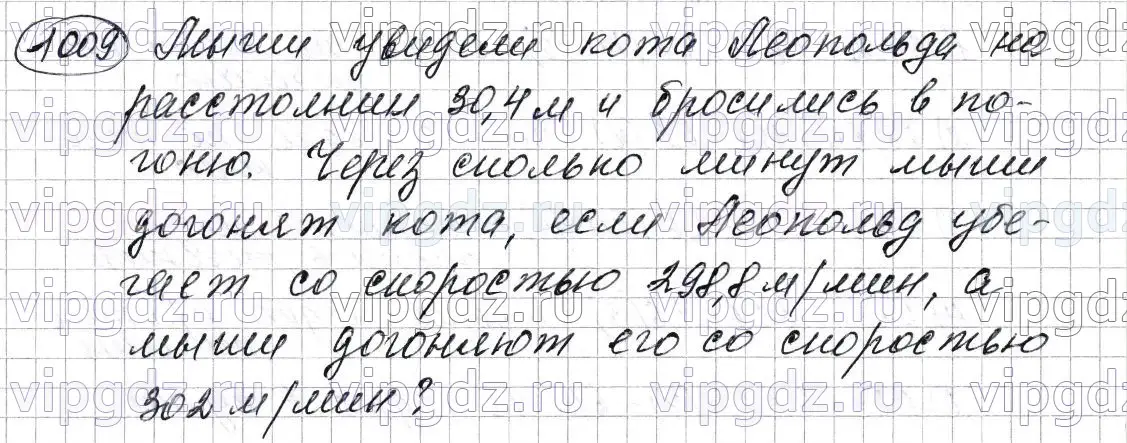 1009 Мыши увидели кота Леопольда на
расстоянии 30,4 м и бросились в по-
гоню. Через сколько минут мыши
догонят кота, если Леопольд убе-
гает со скоростью 298,8 м/мин, а
мыши догоняют его со скоростью
302 м/мин?
vipgdz.ru